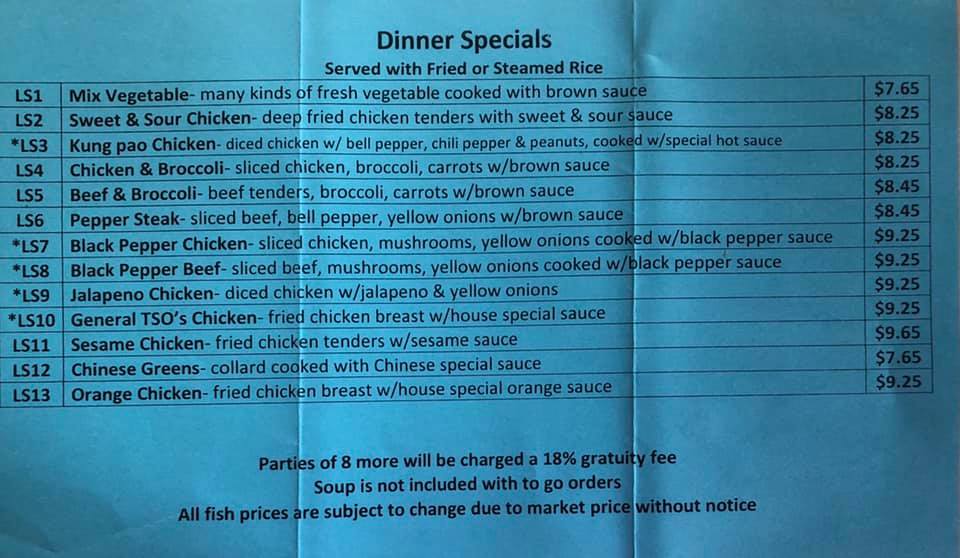 Dinner Specials
Served with Fried or Steamed Rice
LS1 Mix Vegetable- many kinds of fresh vegetable cooked with brown sauce $7.65
LS2 Sweet & Sour Chicken- deep fried chicken tenders with sweet & sour sauce $8.25
*LS3 Kung pao Chicken- diced chicken w/ bell pepper, chili pepper & peanuts, cooked w/special hot sauce $8.25
LS4 Chicken & Broccoli- sliced chicken, broccoli, carrots w/brown sauce $8.25
LS5 Beef & Broccoli- beef tenders, broccoli, carrots w/brown sauce $8.45
LS6 Pepper Steak- sliced beef, bell pepper, yellow onions w/brown sauce $8.45
*LS7 Black Pepper Chicken- sliced chicken, mushrooms, yellow onions cooked w/black pepper sauce $9.25
*LS8 Black Pepper Beef- sliced beef, mushrooms, yellow onions cooked w/black pepper sauce $9.25
*LS9 Jalapeno Chicken- diced chicken w/jalapeno & yellow onions $9.25
*LS10 General TSO's Chicken- fried chicken breast w/house special sauce $9.25
LS11 Sesame Chicken- fried chicken tenders w/sesame sauce $9.65
LS12 Chinese Greens- collard cooked with Chinese special sauce $7.65
LS13 Orange Chicken- fried chicken breast w/house special orange sauce $9.25
Parties of 8 more will be charged a 18% gratuity fee
Soup is not included with to go orders
All fish prices are subject to change due to market price without notice